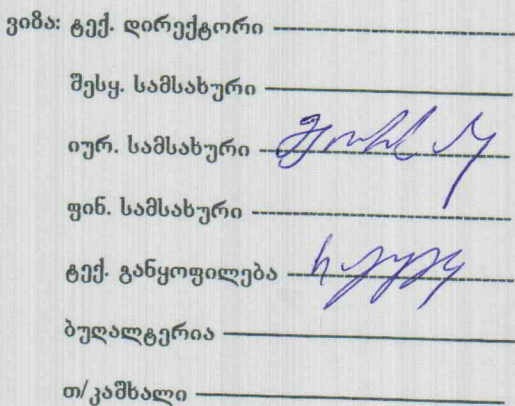 ვიზა: ტექ. დირექტორი
შესყ. სამსახური
იურ. სამსახური
ფინ. სამსახური
ტექ. განყოფილება
ბუღალტერია
თ/კაშხალი